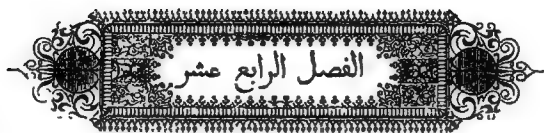 الفصل الرابع عشر